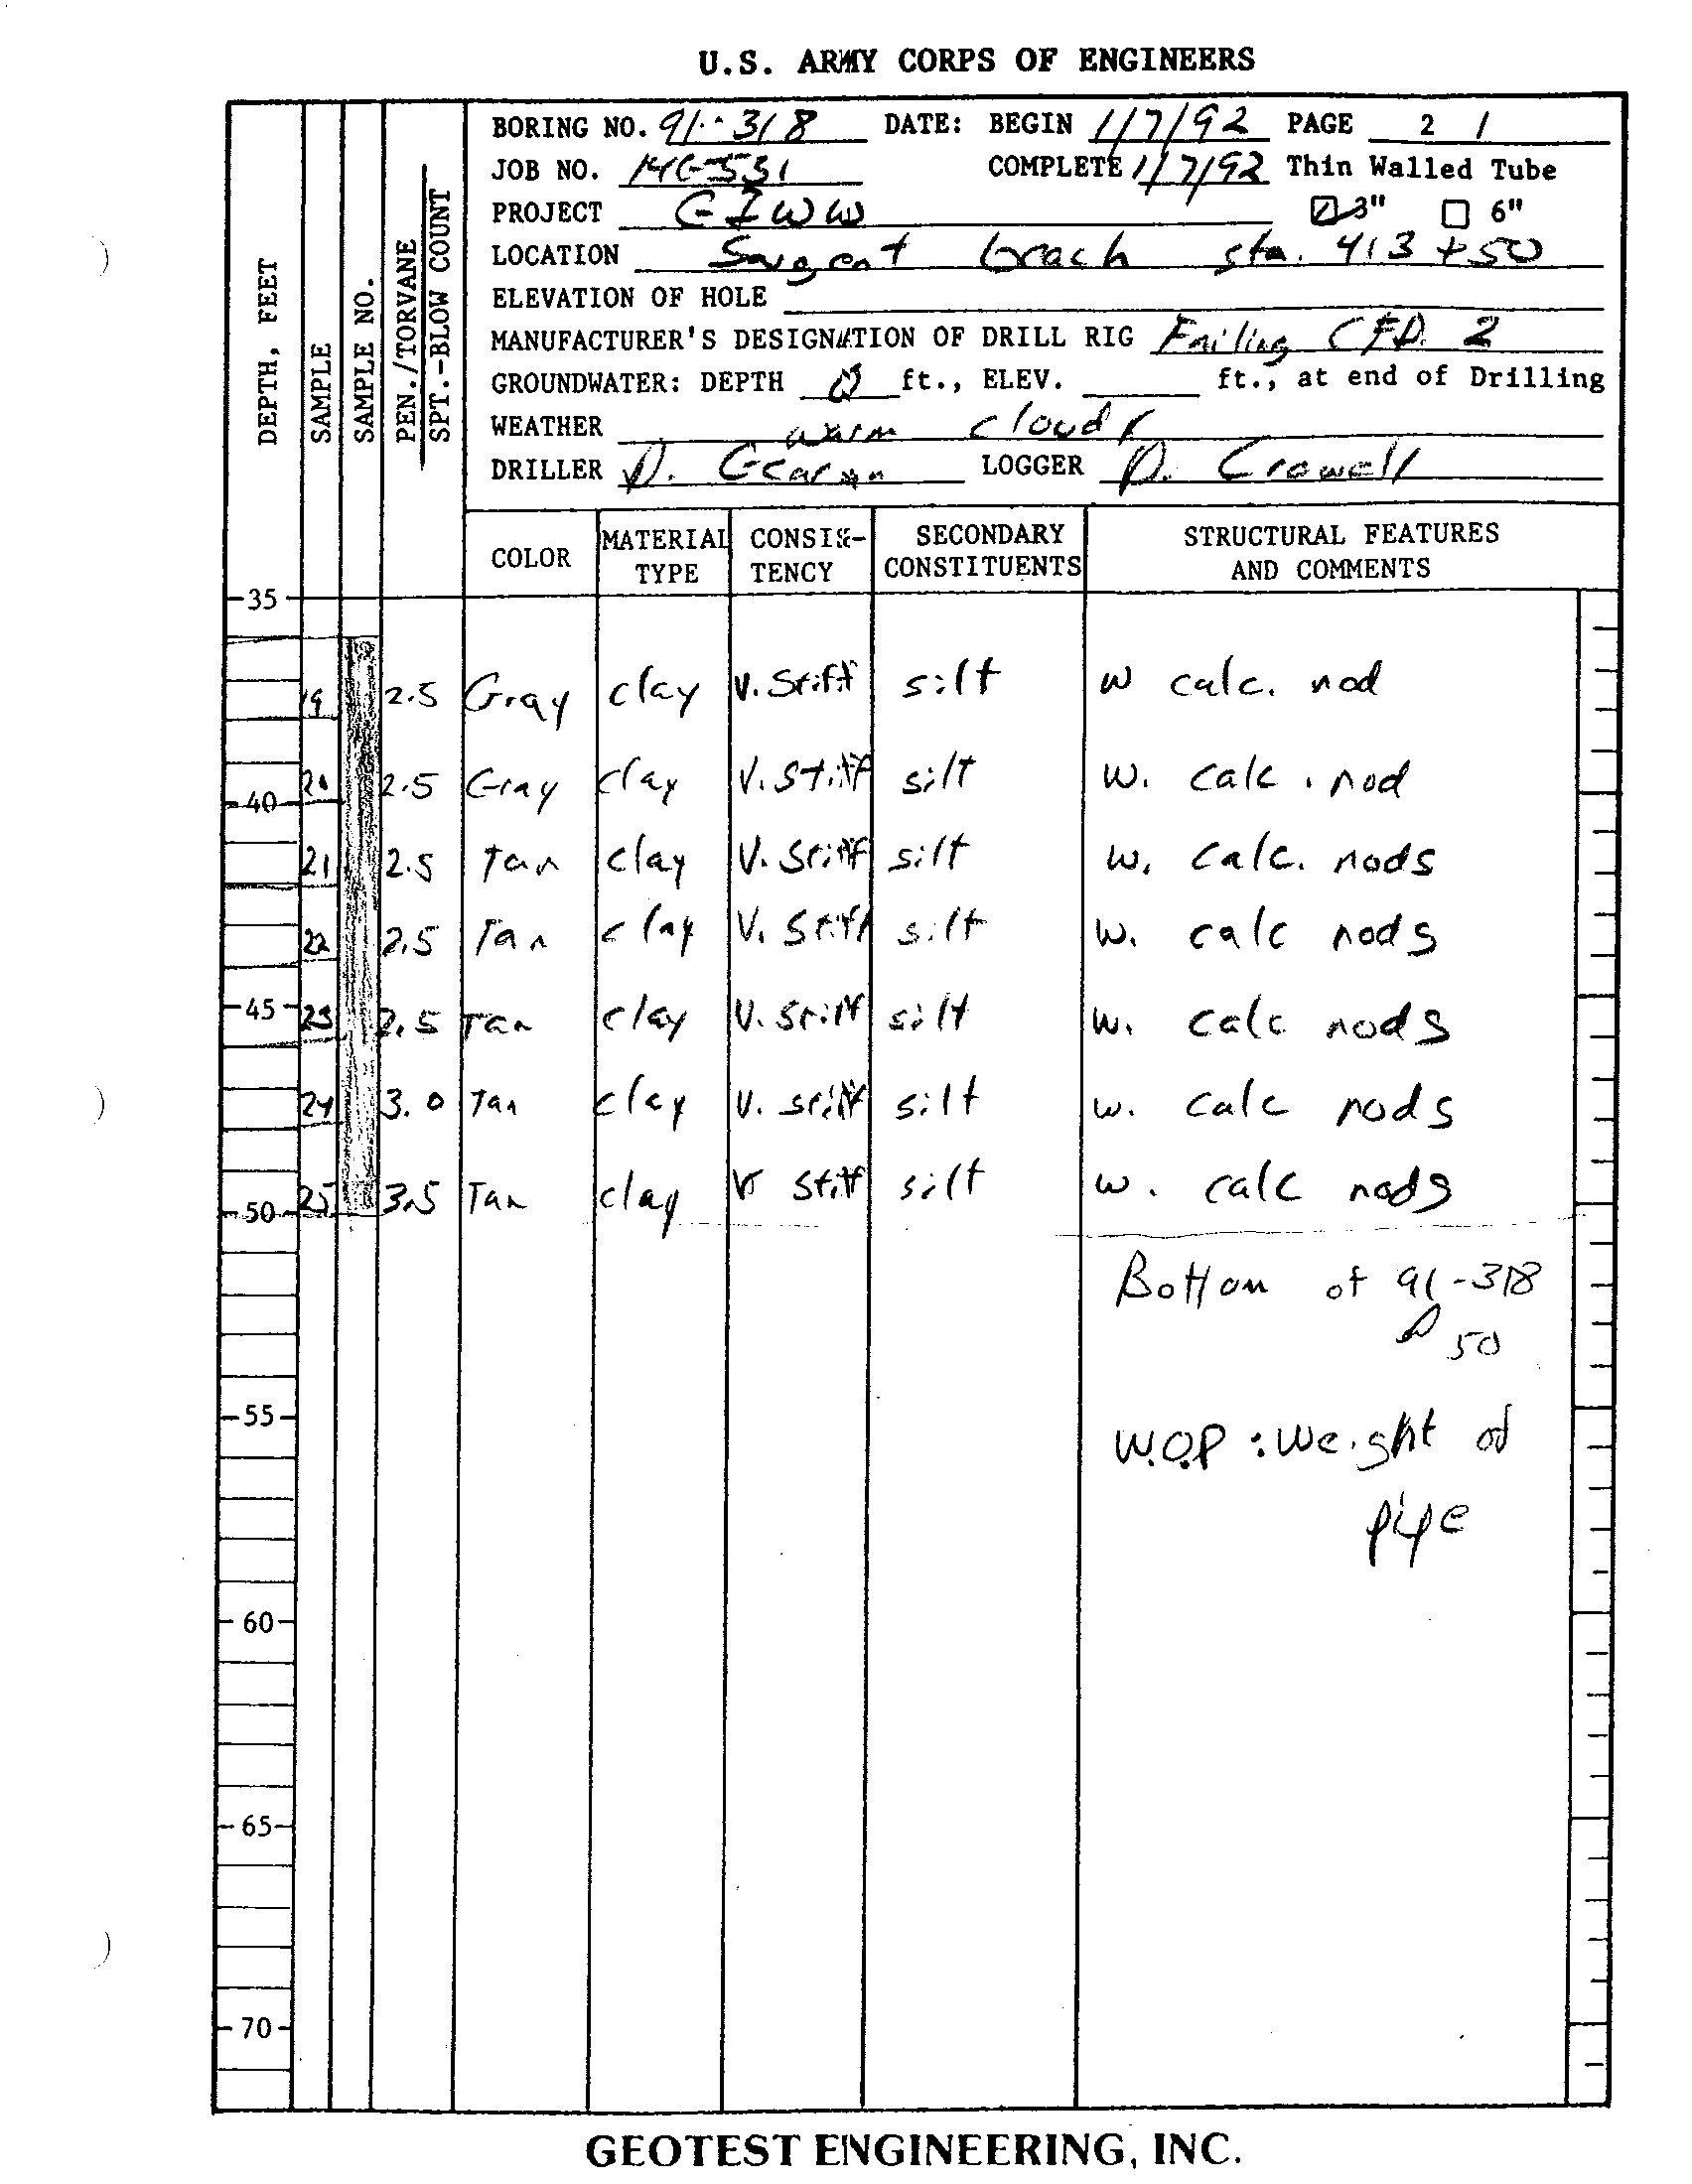 U.S. ARMY CORPS OF ENGINEERS
BORING NO. 91-318 DATE: BEGIN 1/7/92 PAGE 2 /
JOB NO. COMPLETE 1/7/92 Thin Walled Tube
PROJECT GIWW 3" 6"
LOCATION Sargent beach sta. 413+50
ELEVATION OF HOLE
MANUFACTURER'S DESIGNATION OF DRILL RIG Failing CFD. 2
GROUNDWATER: DEPTH 0 ft., ELEV. ft., at end of Drilling
WEATHER warm cloudy
DRILLER D. LOGGER D. Crowell
DEPTH, FEET
SAMPLE
SAMPLE NO.
PEN./TORVANE
SPT.-BLOW COUNT
COLOR MATERIAL TYPE CONSISTENCY SECONDARY CONSTITUENTS STRUCTURAL FEATURES AND COMMENTS
35
19 2.5 Gray clay V. Stiff silt w calc. nod
20 2.5 Gray clay V. Stiff silt w. calc. nod
40
21 2.5 Tan clay V. Stiff silt w. calc. nods
22 2.5 Tan clay V. Stiff silt w. calc nods
45 23 2.5 Tan clay V. Stiff silt w. calc nods
24 3.0 Tan clay V. stiff silt w. calc nods
50 25 3.5 Tan clay V Stiff silt w. calc nods
Bottom of 91-318
@ 50
55
W.O.P : Weight of
pipe
60
65
70
GEOTEST ENGINEERING, INC.